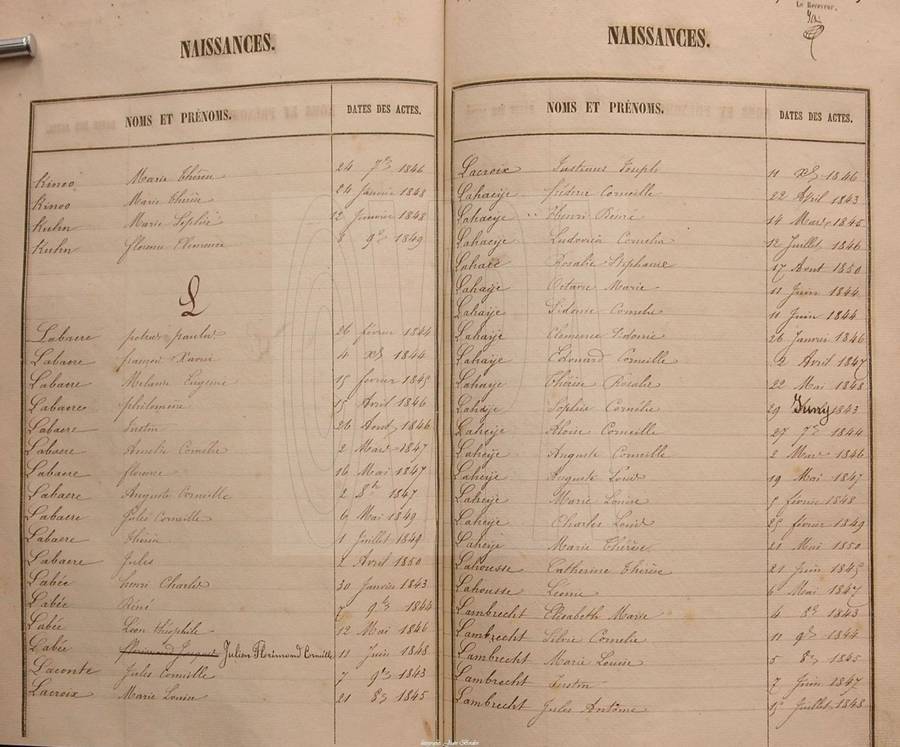 NAISSANCES.
NOMS ET PRÉNOMS. DATES DES ACTES.
Kinoo Marie Thérèse 24 7bre 1846
Kinoo Marie Thérèse 24 Janvier 1848
Kuhn Marie Sophie 12 Janvier 1848
Kuhn florence Clémence 8 9bre 1849
L
Labaere 26 février 1844
Labaere françois Xavier 4 Xbre 1844
Labaere Melanie Eugenie 15 février 1845
Labaere philomène 15 Avril 1846
Labaere Justin 26 Aout 1846
Labaere Amelie Cornelie 2 Mars 1847
Labaere florence 16 Mai 1847
Labaere Auguste Corneille 2 8bre 1847
Labaere Jules Corneille 6 Mai 1849
Labaere Thérèse 1 Juillet 1849
Labaere Jules 2 Avril 1850
Labée henri Charles 30 Janvier 1843
Labée Réné 7 9bre 1844
Labée Léon théophile 12 Mai 1846
Labée Julien Florimond Corneille 11 Juin 1848
Laconte Jules Corneille 7 9bre 1843
Lacroix Marie Louise 21 8bre 1845
Le Receveur,
NAISSANCES.
NOMS ET PRÉNOMS. DATES DES ACTES.
Lacroix Joseph 11 Xbre 1846
Lahaeije Corneille 22 Avril 1843
Lahaeije Henri 14 Mars 1845
Lahaeije Ludovica Cornelia 12 Juillet 1846
Lahaee Rosalie Stéphanie 17 Aout 1850
Lahaije Octavie Marie 11 Juin 1844
Lahaije Sidonie Cornelie 11 Juin 1844
Lahaije Clemence Sidonie 26 Janvier 1846
Lahaije Edouard Corneille 2 Avril 1847
Lahaye Thérèse Rosalie 22 Mai 1848
Lahaije Sophie Cornélie 29 1843
Laheije Aloise Corneille 27 7bre 1844
Laheije Auguste Corneille 2 Mars 1846
Laheije Auguste Louis 19 Mai 1847
Laheije Marie Louise 5 février 1848
Laheije Charles Louis 25 février 1849
Laheije Marie Thérèse 21 Mai 1850
Lahousse Catherine Thérèse 21 Juin 1845
Lahousse Léonie 6 Mai 1847
Lambrecht Elisabeth Marie 4 8bre 1843
Lambrecht Silvie Cornelie 11 9bre 1844
Lambrecht Marie Louise 5 8bre 1845
Lambrecht Justin 7 Juin 1847
Lambrecht Jules Antoine 15 Juillet 1848